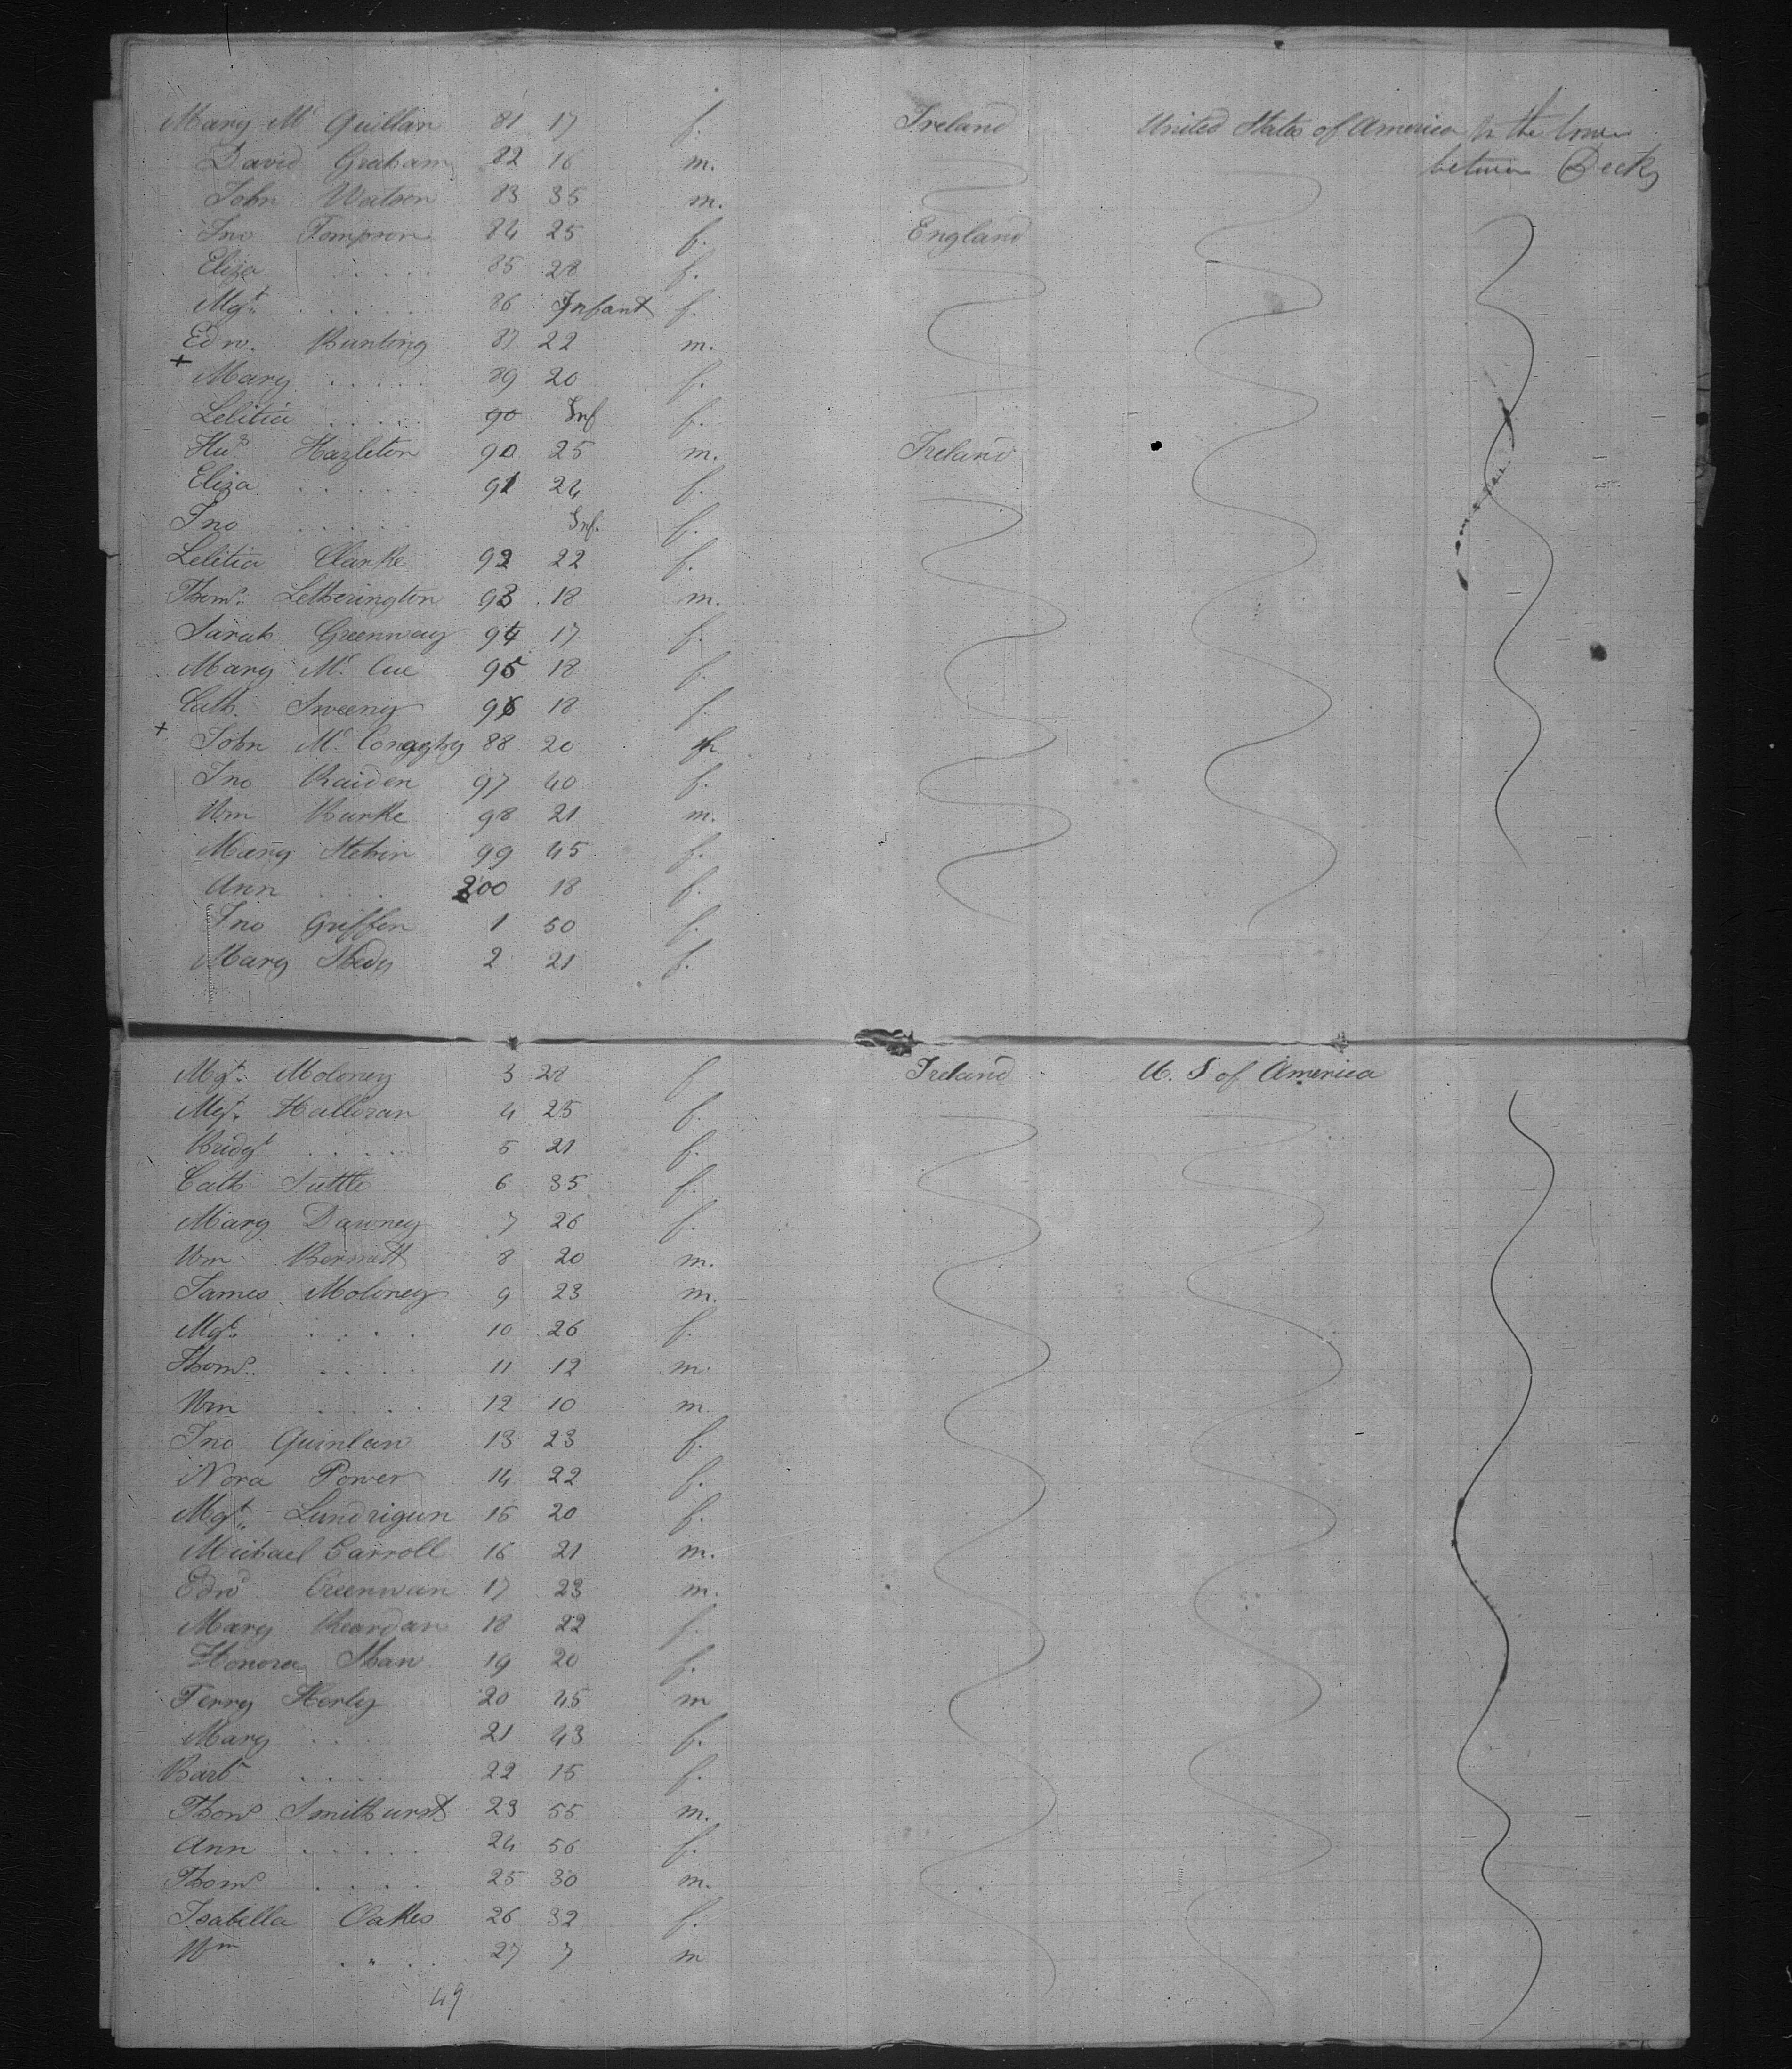 Mary Mc Quillan 81 17 f. Ireland United States of America In the lower
David Graham 82 16 m. between Decks
John Watson 83 35 m.
Jno Tompson 84 25 f. England
Eliza . . . . . 85 28 f.
Mgt. . . . . . 86 Infant f.
Edw. Bunting 87 22 m.
+ Mary . . . . . 89 20 f.
Letitia . . . . . 90 Inf f.
Hu Hazleton 90 25 m. Ireland
Eliza . . . . . 91 24 f.
Jno . . . . . Inf. f.
Letitia Clarke 92 22 f.
Thoms. Letherington 93 18 m.
Sarah Greenway 94 17 f.
Mary Mc Cue 95 18 f.
Cath. Sweeny 96 18 f.
+ John Mc Conaghy 88 20
Jno Raiden 97 40 f.
Wm Burke 98 21 m.
Mary 99 45 f.
Ann . . . . 200 18 f.
Jno Griffen 1 50 f.
Mary 2 21 f.
Mgt. Moloney 3 28 f Ireland U. S of America
Mgt. Halloran 4 25 f.
Bridgt . . . . . 5 21 f.
Cath Suttle 6 35 f.
Mary Dawney 7 26 f.
Wm 8 20 m.
James Moloney 9 23 m.
Mgt. . . . . 10 26 f.
Thoms. . . . . 11 12 m
Wm . . . . 12 10 m
Jno Quinlan 13 23 f.
Nora Power 14 22 f.
Mgt. Lundrigun 15 20 f.
Michael Carroll 16 21 m.
Edwd 17 23 m.
Mary Reardan 18 22 f.
Honora 19 20 f.
Terry Herly 20 45 m
Mary . . . 21 43 f.
Barb . . . . 22 15 f.
Thoms Smithurst 23 55 m.
Ann . . . . . 24 56 f.
Thoms . . . . 25 30 m.
Isabella Oakes 26 32 f.
Wm . . . . 27 7 m
49